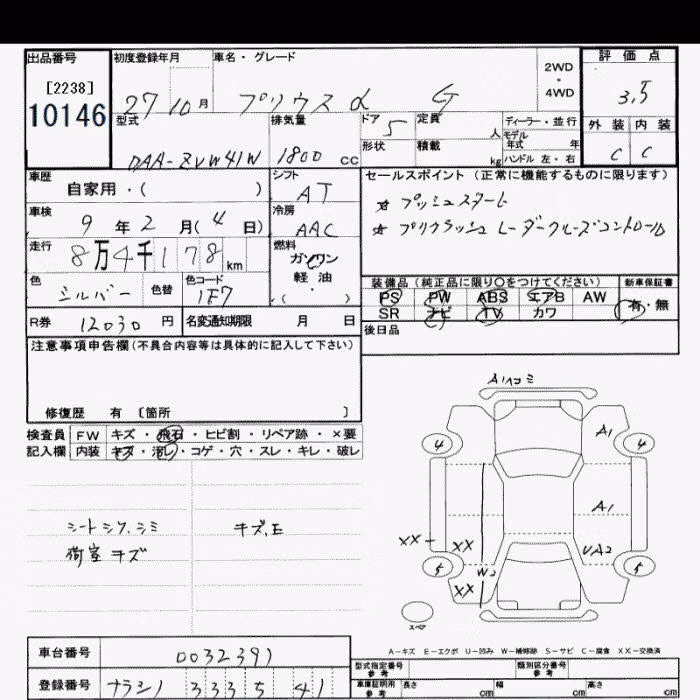 出品番号 初度登録年月 車名・グレード 2WD・4WD 評価点
[2238]
10146
27 10月 プリウスα G 3.5
型式 排気量 ドア 定員 人 ディーラー・並行 外装 内装
DAA-ZVW41W 1800 cc 5
モデル年式 年
形状 積載 kg ハンドル 左・右 C C
車歴 シフト セールスポイント (正常に機能するものに限ります)
自家用・( ) AT ☆ プッシュスタート
車検 冷房 ☆ プリクラッシュ レーダークルーズコントロール
9 年 2 月(4 日) AAC
走行 8万4千178 km 燃料
ガソリン
軽油
・( )
色 シルバー 色替 色コード 1F7
装備品 (純正品に限り○をつけてください) 新車保証書
PS PW ABS エアB AW 有・無
SR ナビ TV カワ
R券 12030 円 名変通知期限 月 日
後日品
注意事項申告欄(不具合内容等は具体的に記入して下さい)
修復歴 有 [箇所 ]
検査員 FW キズ・飛石・ヒビ割・リペア跡・×要
記入欄 内装 キズ・汚レ・コゲ・穴・スレ・キレ・破レ
シートシワ、シミ キズ、E
荷室キズ
A1ハコミ
4 A1 4
A1
XX XX UA2
5 W2 5
XX
スペア
A-キズ E-エクボ U-凹み W-補修跡 S-サビ C-腐食 XX-交換済
車台番号 0032391
登録番号 ナラシノ 333 5 41
型式指定番号 参考 類別区分番号 参考
車庫証明用 参考 長さ cm 幅 cm 高さ cm